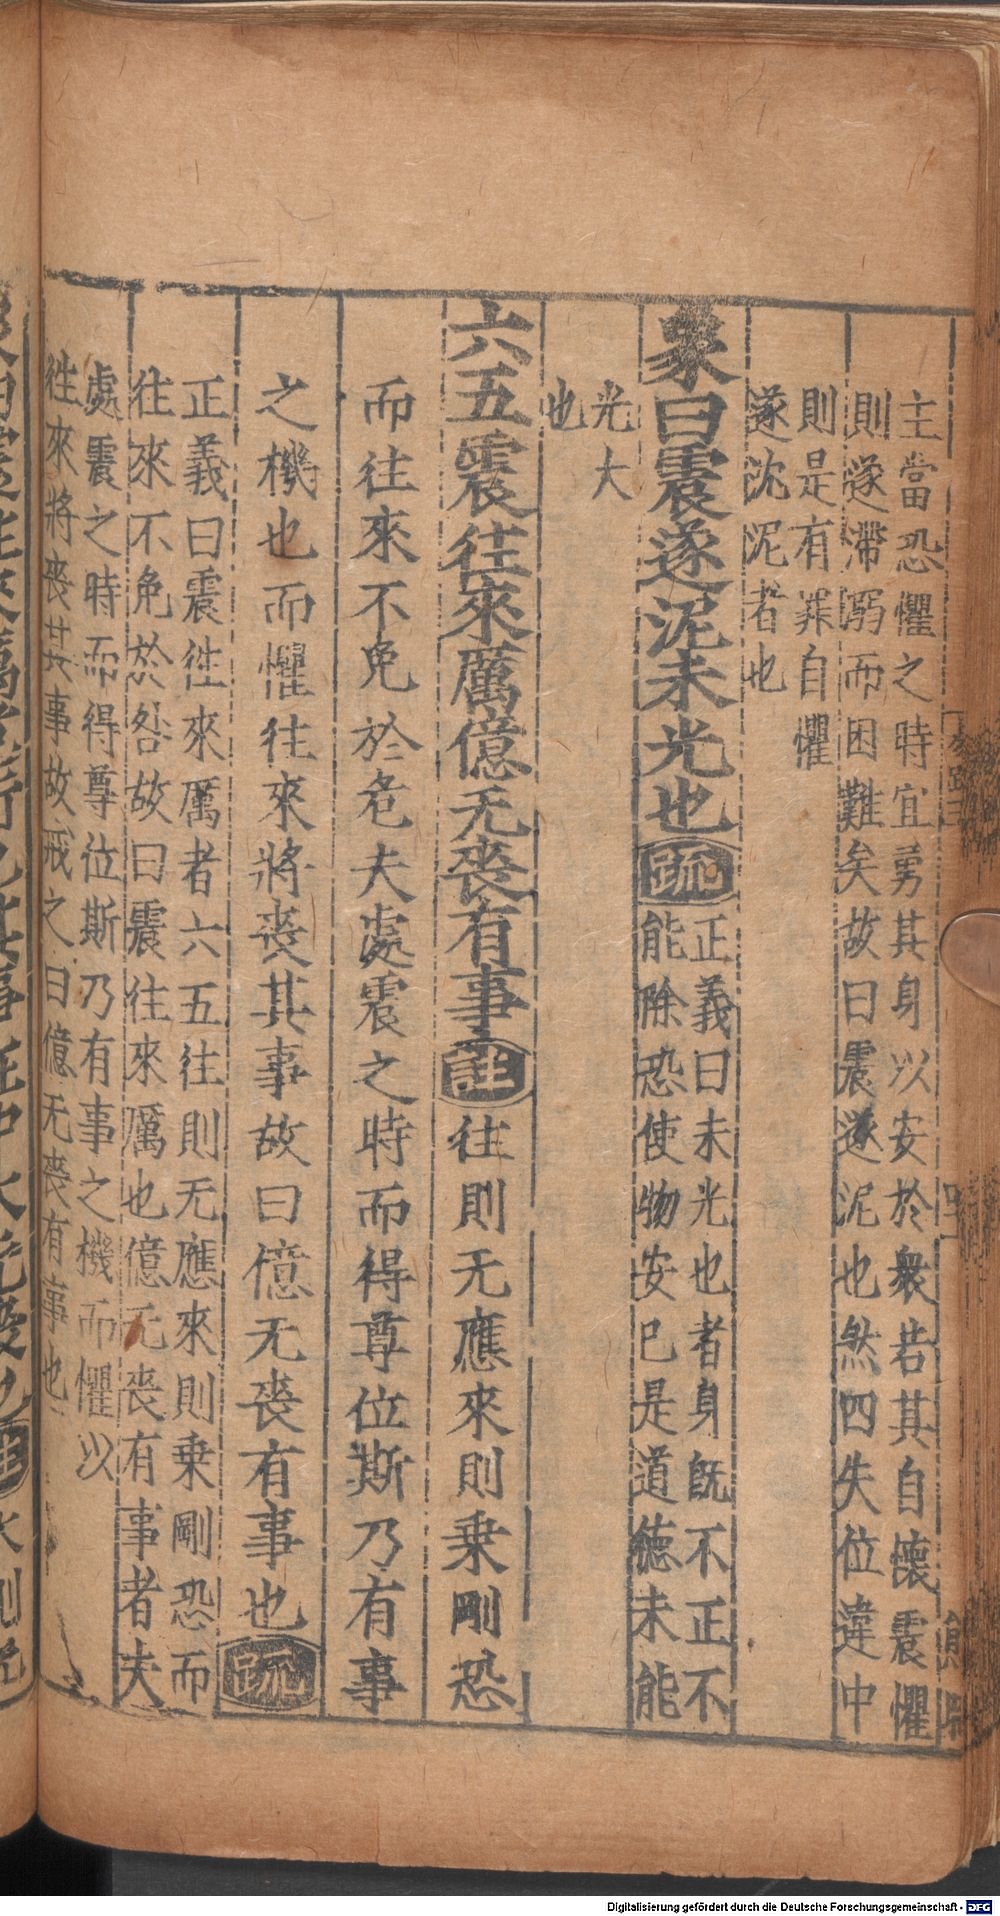 主當恐懼之時宜勇其身以安於衆若其自懷震懼
則遂滯溺而困難矣故曰震遂泥也然四失位違中
則是有罪自懼
遂沈泥者也
象曰震遂泥未光也疏
正義曰未光也者身旣不正不
能除恐使物安已是道德未能
光大
也
六五震往來厲億无喪有事註往則无應來則乗剛恐
而往來不免於危夫處震之時而得尊位斯乃有事
之機也而懼往來將喪其事故曰億无喪有事也疏
正義曰震徃來厲者六五往則无應來則乗剛恐而
往來不免於咎故曰震往來厲也億无喪有事者夫
處震之時而得尊位斯乃有事之機而懼以
徃來將喪其事故戒之曰億无喪有事也
Digitalisierung gefördert durch die Deutsche Forschungsgemeinschaft - DFG